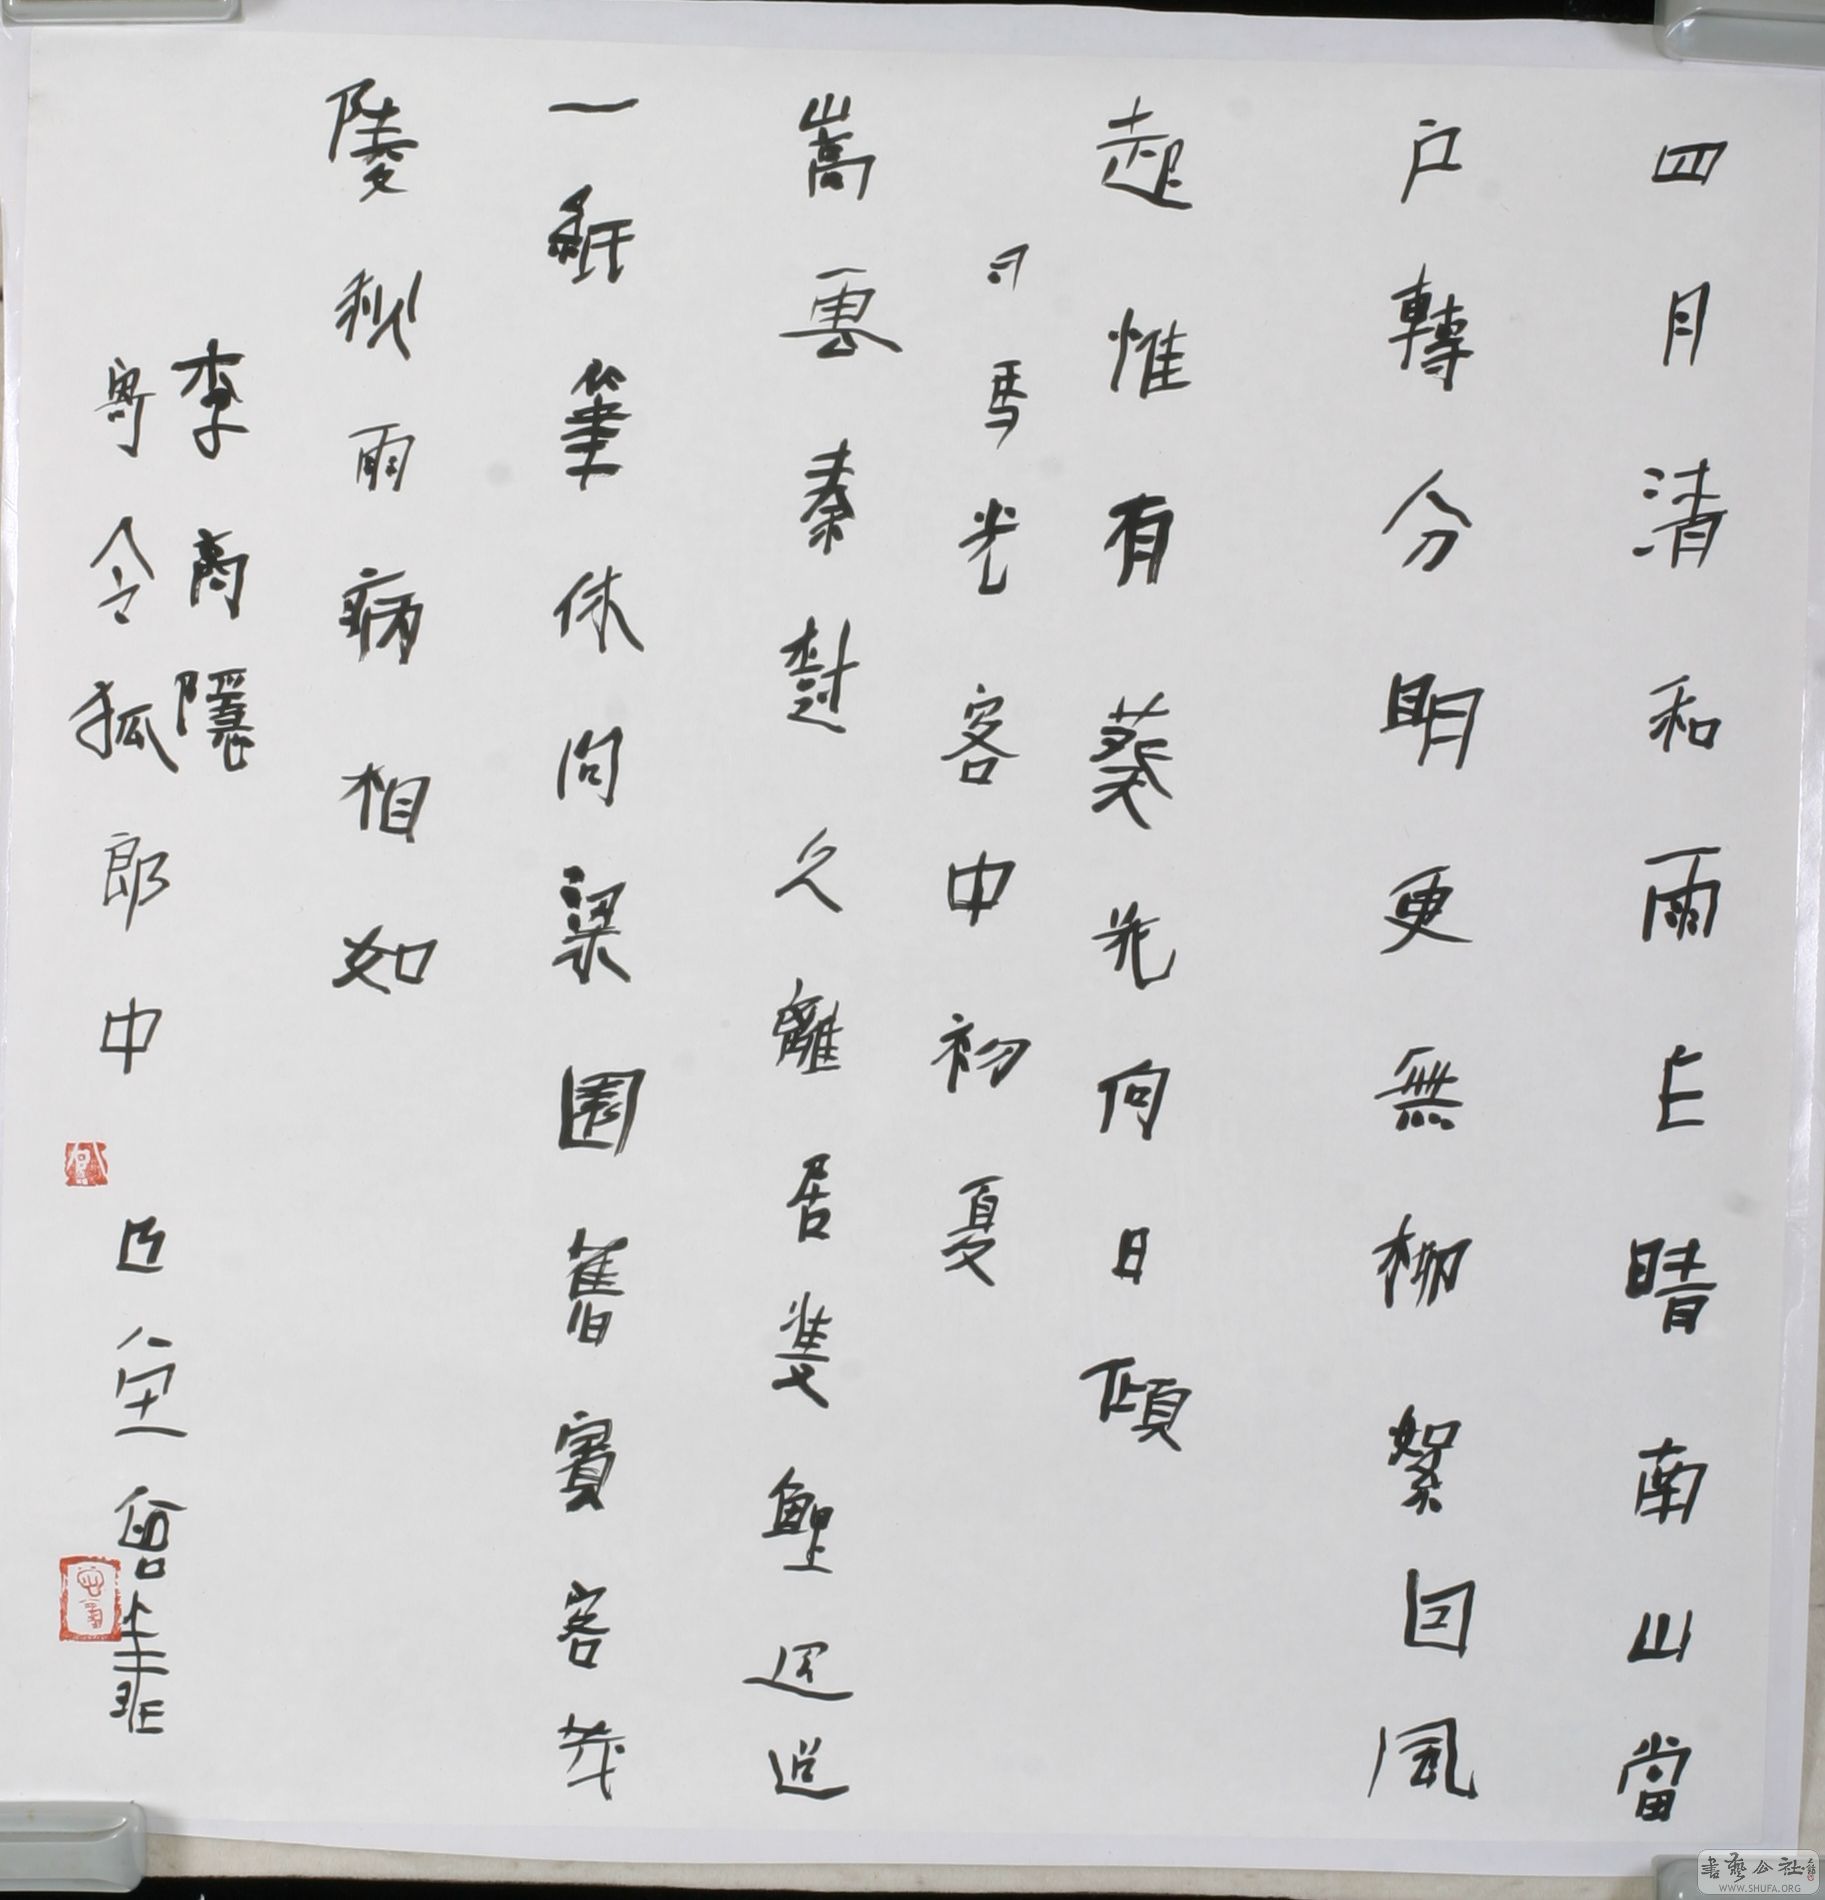 四月清和雨乍晴南山當
户轉分明更無柳絮因風
起惟有葵花向日傾
司馬光客中初夏
嵩雲秦樹久離居雙鯉迢迢
一紙筆休問梁園舊賓客茂
陵秋雨病相如
李商隱
寄令狐郎中
書藝公社
WWW.SHUFA.ORG